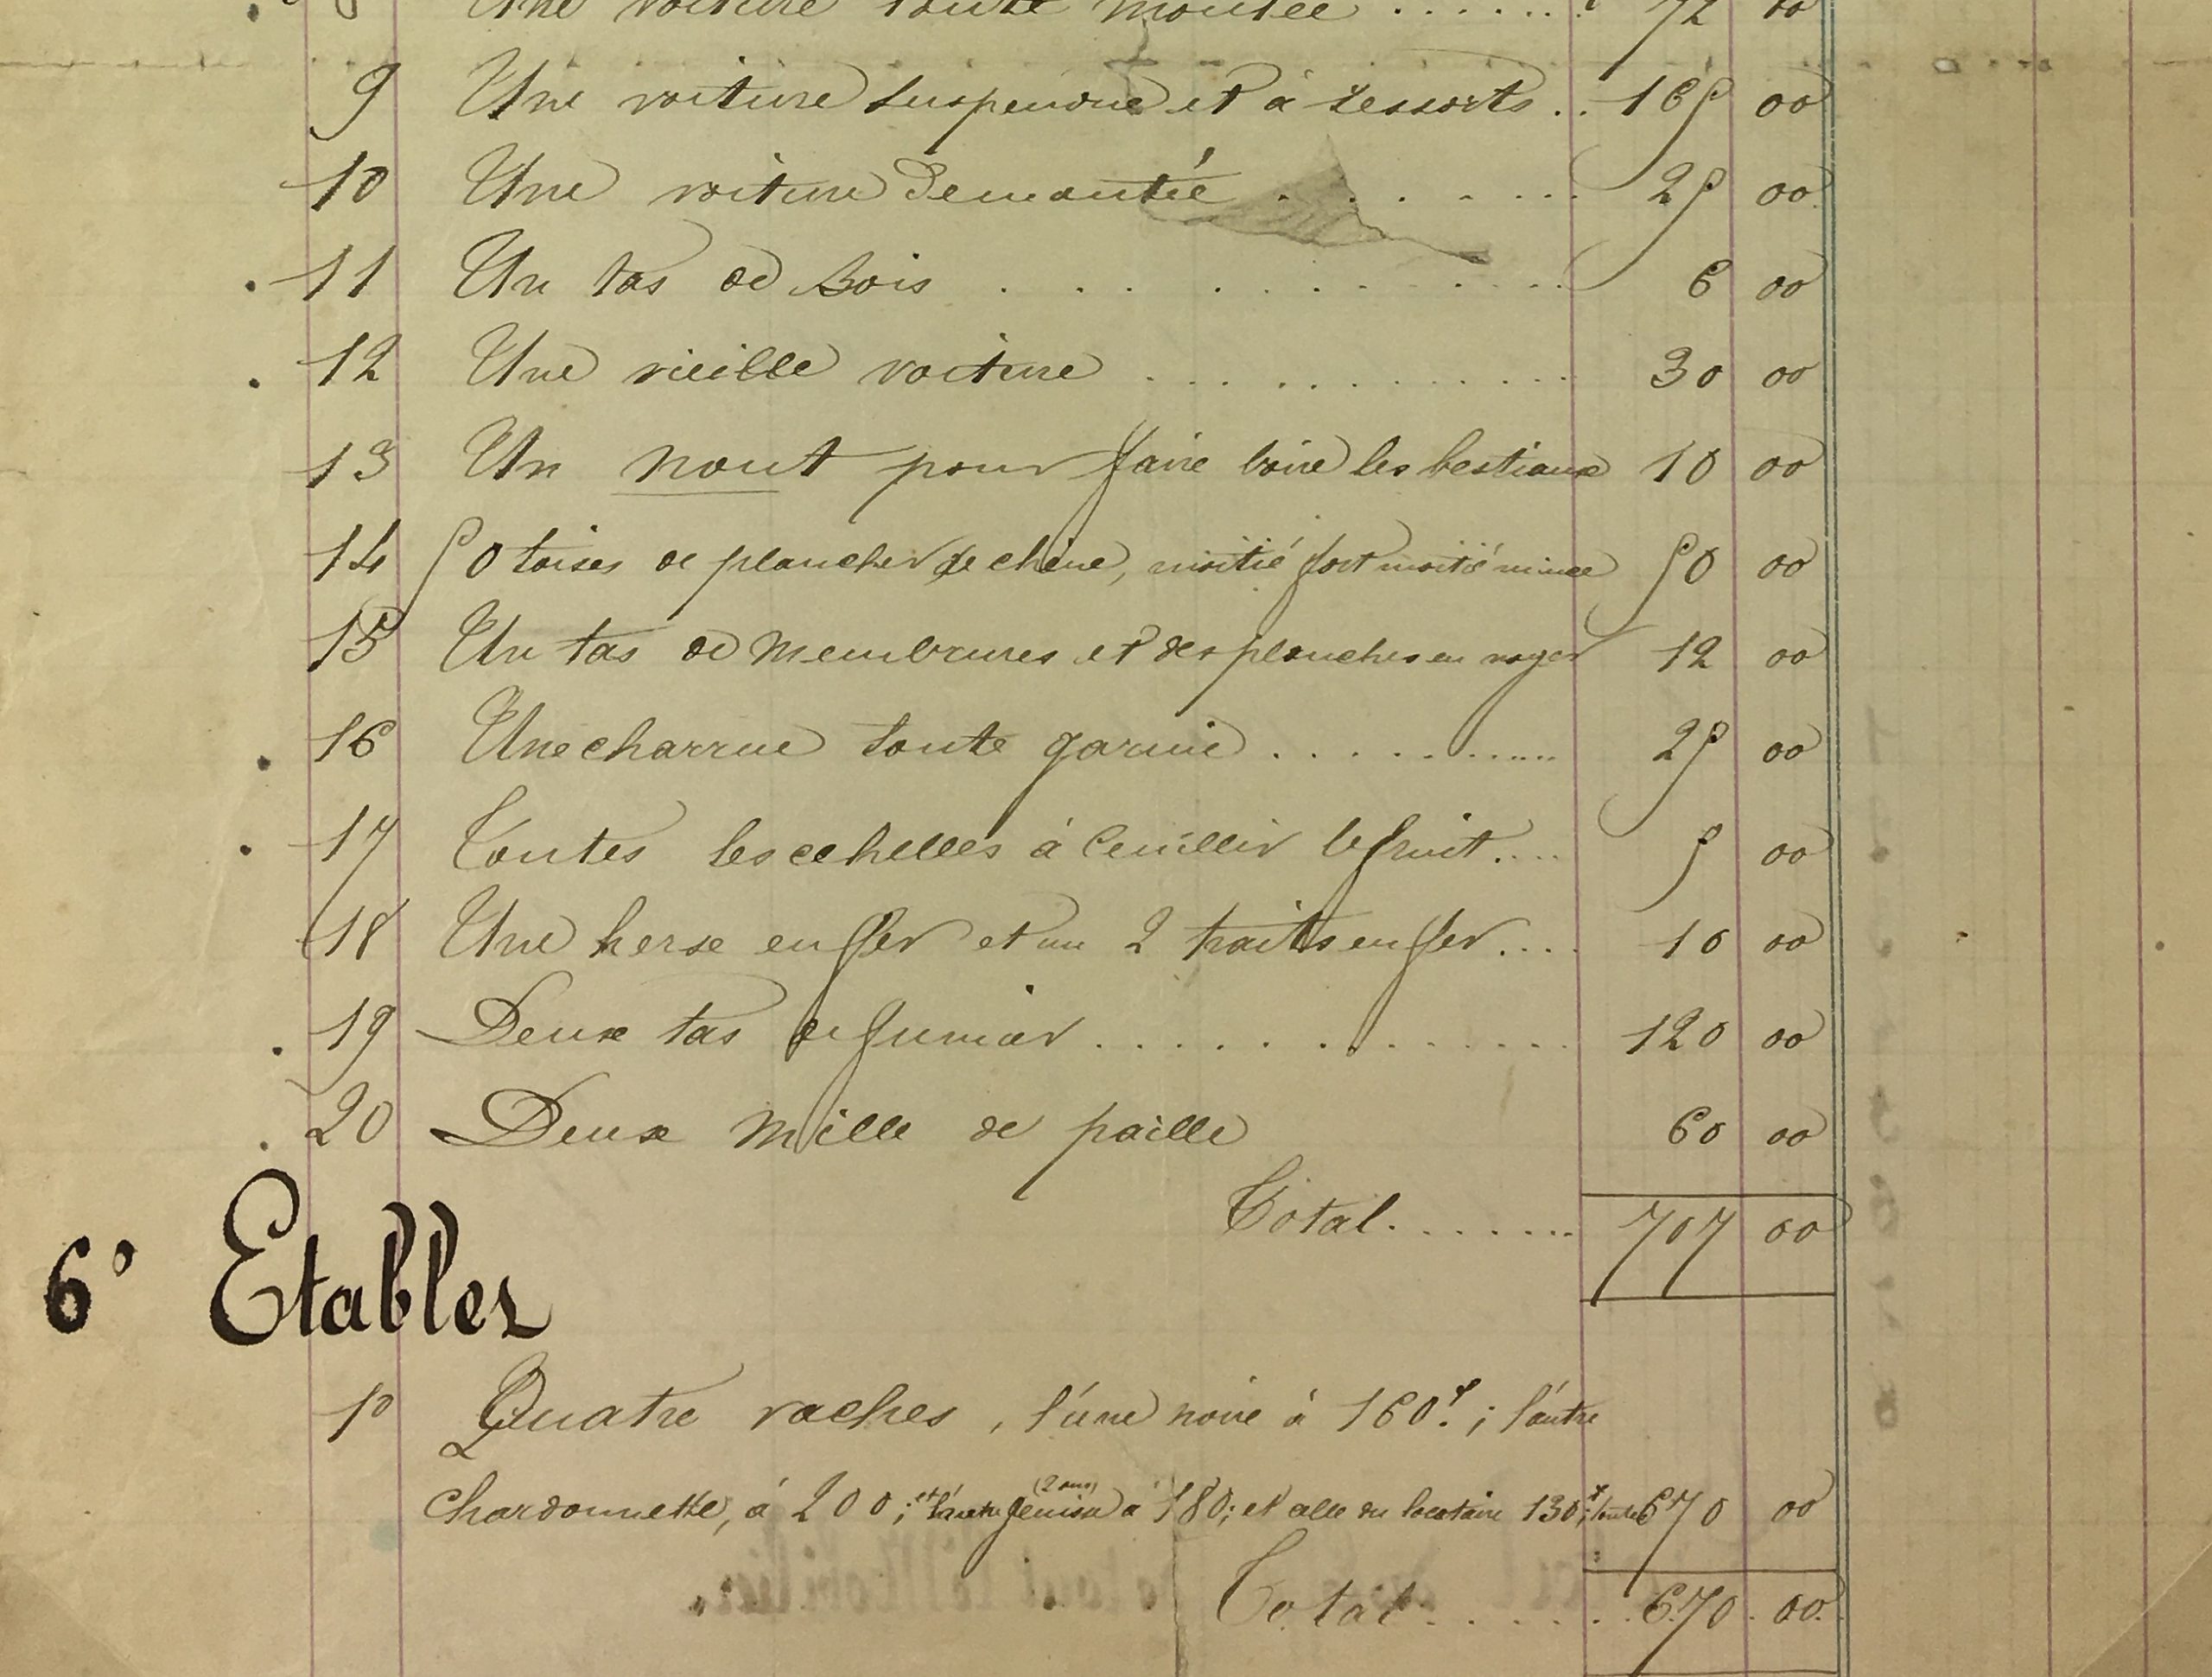 8 Une voiture toute montée ....... 72 00
9 Une voiture suspendue et à ressorts .. 165 00
10 Une voiture demontée ....... 25 00
11 Un tas de bois ............ 6 00
12 Une vieille voiture ............ 30 00
13 Un nout pour faire boire les bestiaux 10 00
14 50 toises de plancher de chêne, moitié fort moitié mince 50 00
15 Un tas de membrures et des planches en noyer 12 00
16 Une charrue toute garnie ........... 25 00
17 Toutes les echelles à ceuillir le fruit .... 5 00
18 Une herse en fer et un 2 traits en fer .... 10 00
19 Deux tas de fumier ............. 120 00
20 Deux mille de paille 60 00
Total ....... 707 00
6° Etables
1° Quatre vaches, l'une noire à 160f.; l'autre
chardonnette, à 200; et l'autre genisse (2 ans) à 180; et celle du locataire 130f; toutes 670 00
Total ....... 670 00